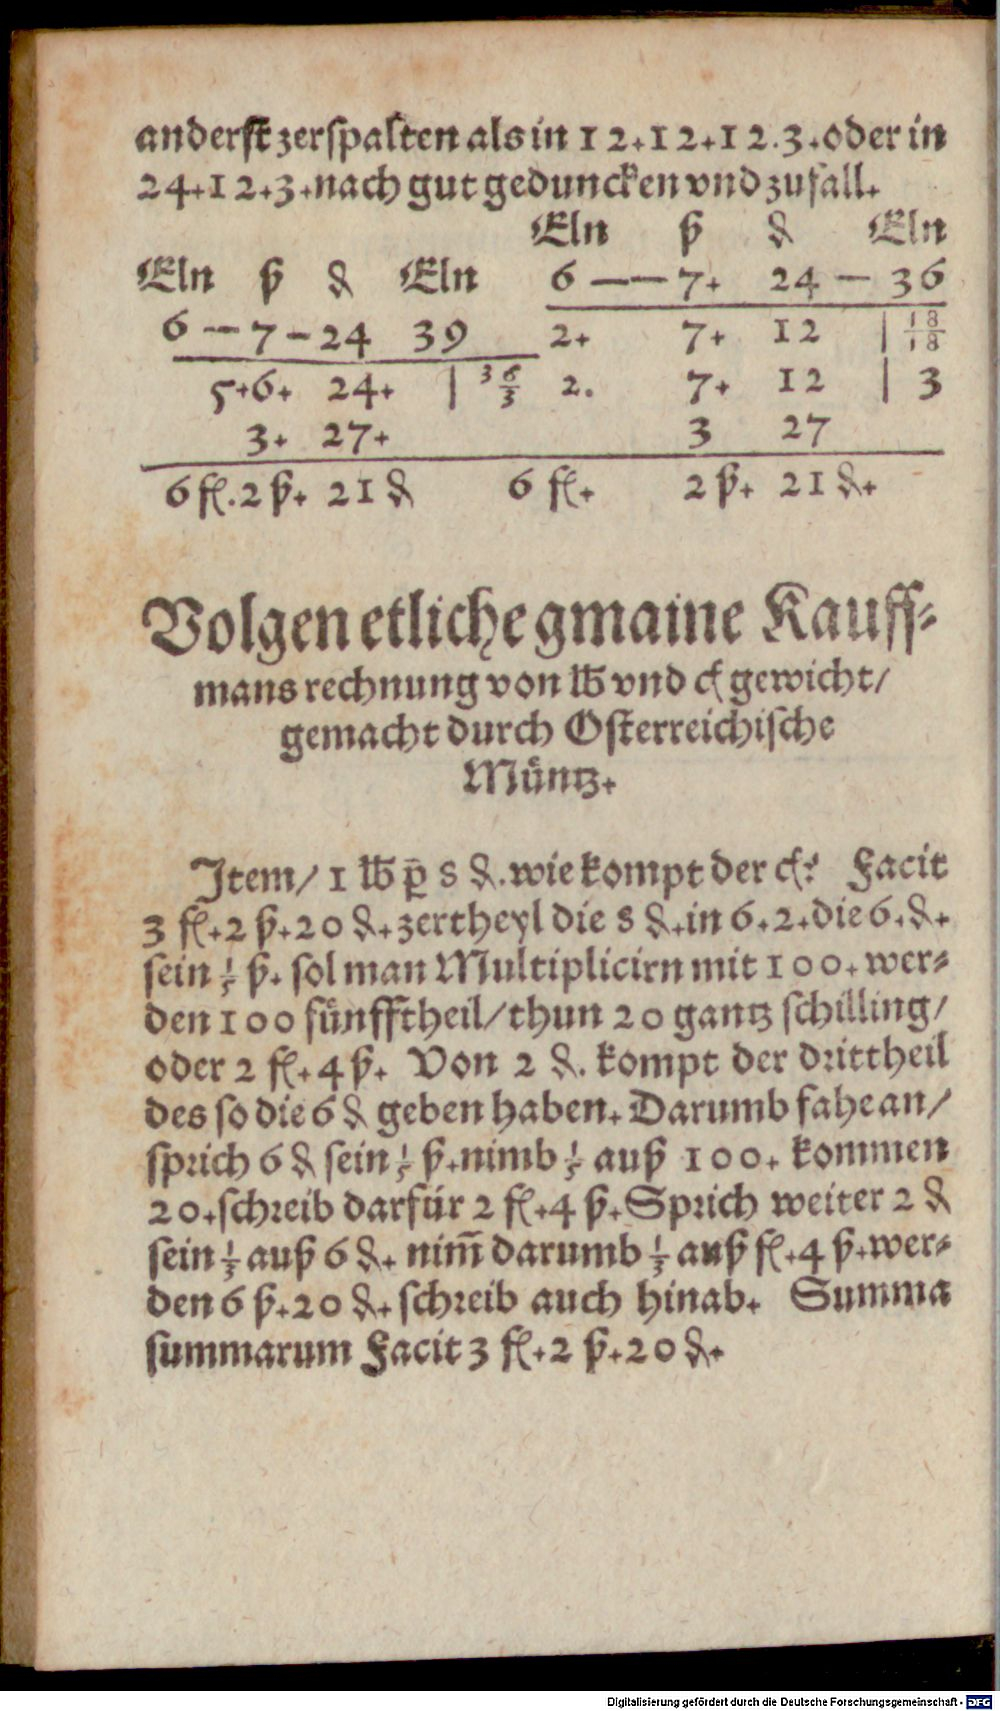 anderst zerspalten als in 12.12.12.3. oder in
24.12.3. nach gut geduncken vnd zufall.
Eln ß ₰ Eln
Eln ß ₰ Eln 6 — — 7. 24 — 36
6 — 7 — 24 39 2. 7. 12 | 18/18
5.6. 24. | 36/3 2. 7. 12 | 3
3. 27. 3 27
6 fl. 2 ß. 21 ₰ 6 fl. 2 ß. 21 ₰.
Volgen etliche gmaine Kauff⸗
mans rechnung von ℔ vnd ct gewicht/
gemacht durch Osterreichische
Müntz.
Item/ 1 ℔ p̄ 8 ₰. wie kompt der ct? Facit
3 fl. 2 ß. 20 ₰. zertheyl die 8 ₰. in 6. 2. die 6. ₰.
sein 1/5 ß. sol man Multiplicirn mit 100. wer⸗
den 100 fünfftheil/ thun 20 gantz schilling/
oder 2 fl. 4 ß. Von 2 ₰. kompt der drittheil
des so die 6 ₰ geben haben. Darumb fahe an/
sprich 6 ₰ sein 1/5 ß. nimb 1/5 auß 100. kommen
20. schreib darfür 2 fl. 4 ß. Sprich weiter 2 ₰
sein 1/3 auß 6 ₰. nim̄ darumb 1/3 auß fl. 4 ß. wer⸗
den 6 ß. 20 ₰. schreib auch hinab. Summa
summarum Facit 3 fl. 2 ß. 20 ₰.
Digitalisierung gefördert durch die Deutsche Forschungsgemeinschaft - DFG